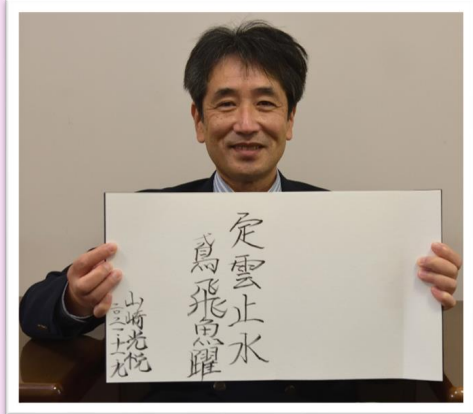 定雲止水
鳶飛魚躍
山崎光悦
二〇二一・十一・九